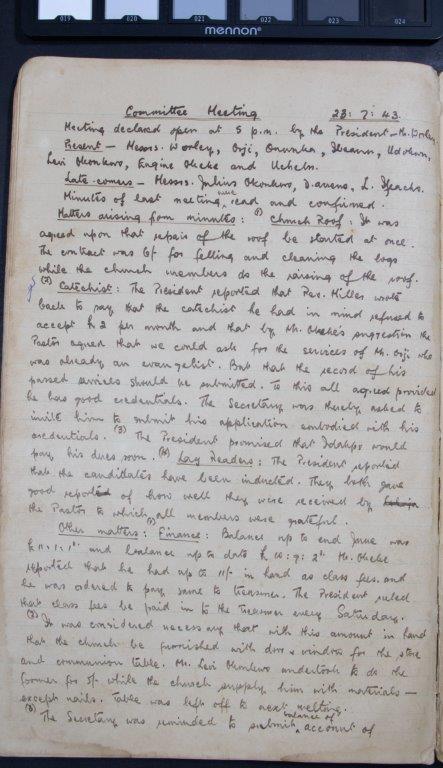 019 020 021 022 023 024
mennon
Committee Meeting 23: 7: 43.
Meeting declared open at 5 p.m. by the President – Mr. Worley.
Present – Messrs. Worley, Orji, Onunka, Ibeann, Udokwu,
Levi Okonkwo, Engine Okeke and Uchebn.
Late-comers – Messrs. Julius Okonkwo, D. L.
Minutes of last meeting were read and confirmed.
Matters arising from minutes: (1) Church Roof: It was
agreed upon that repair of the roof be started at once.
The contract was 6/- for felling and cleaning the logs
while the church members do the raising of the roof.
(2) Catechist: The President reported that Rev. Miller wrote
back to say that the catechist he had in mind refused to
accept £2 per month and that by Mr. Okeke's suggestion the
Pastor agreed that we could ask for the services of Mr. Orji who
was already an evangelist. But that the record of his
passed services should be submitted. To this all agreed provided
he has good credentials. The Secretary was thereby asked to
invite him to submit his application embodied with his
credentials. (3) The President promised that would
pay his dues soon. (4) Lay Readers: The President reported
that the candidates have been inducted. They both gave
good report of how well they were received by
the Pastor to which all members were grateful.
Other matters: (1) Finance: Balance up to end June was
£11: 1: 1d. and balance up to date £10: 9: 2d. Mr. Okeke
reported that he had up to 11/- in hand as class fees, and
he was ordered to pay same to treasurer. The President ruled
that class fees be paid in to the treasurer every Saturday.
(2) It was considered necessary that with this amount in hand
that the church be furnished with door & window for the store
and communion table. Mr. Levi Okonkwo undertook to do the
former for 5/- while the church supply him with materials –
except nails. Table was left off to next meeting.
(3) The Secretary was reminded to submit balance of account of